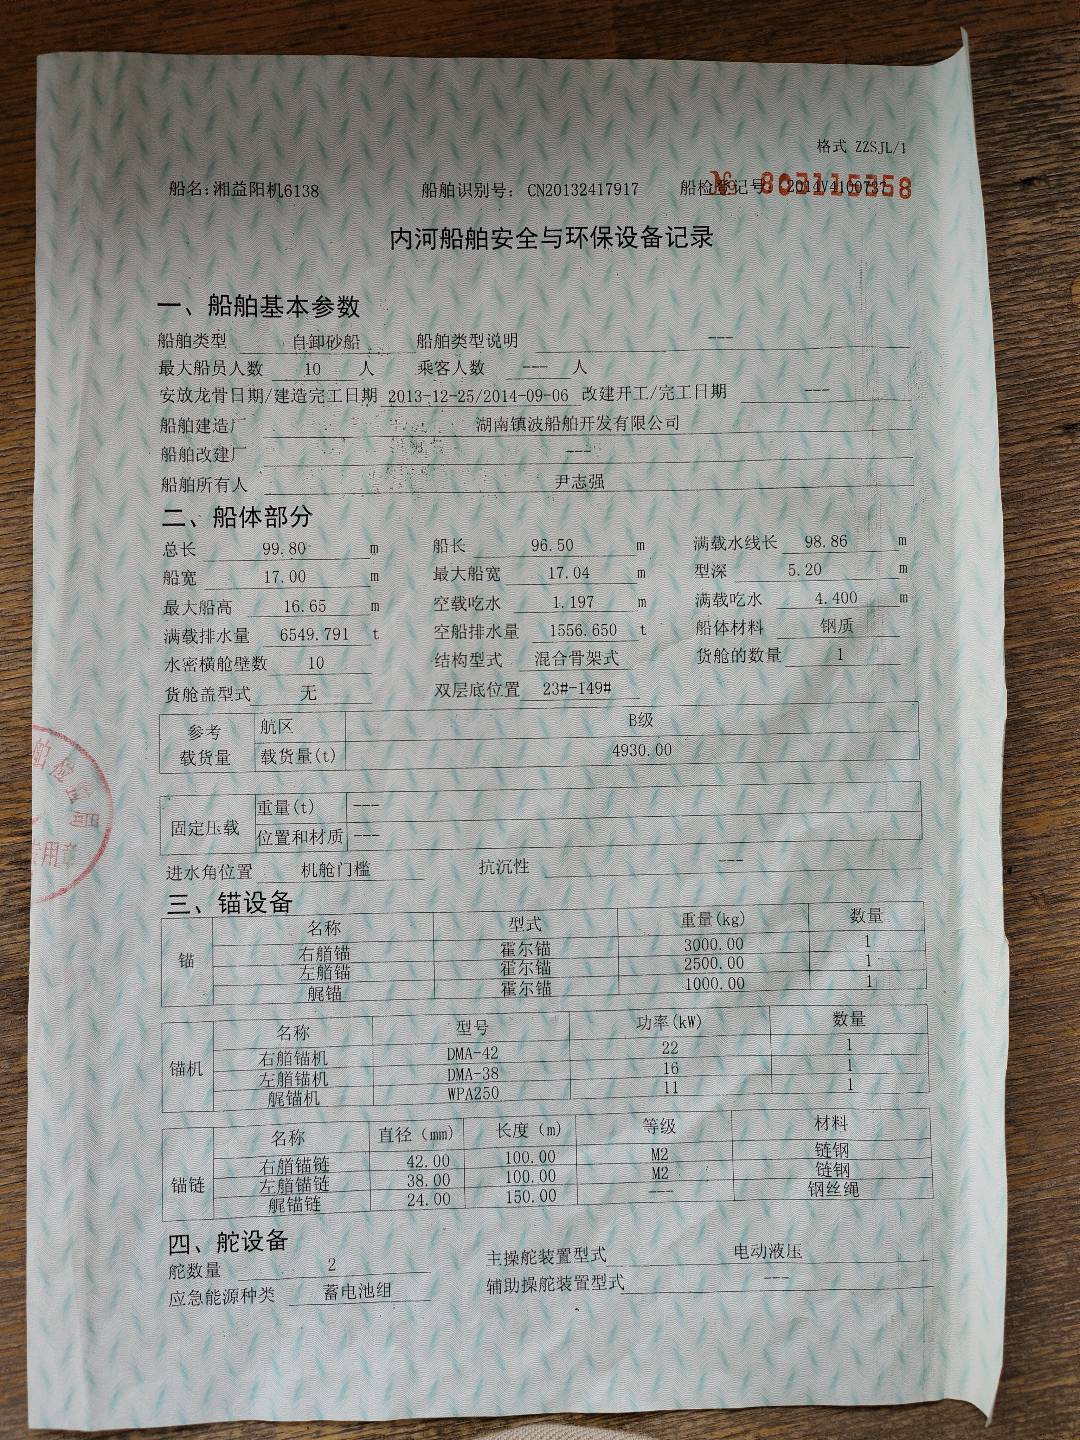 格式 ZZSJL/1
船名:湘益阳机6138 船舶识别号: CN20132417917 船检登记号 2014V4100737
№ 803115358
内河船舶安全与环保设备记录
一、船舶基本参数
船舶类型 自卸砂船 船舶类型说明 ---
最大船员人数 10 人 乘客人数 --- 人
安放龙骨日期/建造完工日期 2013-12-25/2014-09-06 改建开工/完工日期 ---
船舶建造厂 湖南镇波船舶开发有限公司
船舶改建厂 ---
船舶所有人 尹志强
二、船体部分
总长 99.80 m 船长 96.50 m 满载水线长 98.86 m
船宽 17.00 m 最大船宽 17.04 m 型深 5.20 m
最大船高 16.65 m 空载吃水 1.197 m 满载吃水 4.400 m
满载排水量 6549.791 t 空船排水量 1556.650 t 船体材料 钢质
水密横舱壁数 10 结构型式 混合骨架式 货舱的数量 1
货舱盖型式 无 双层底位置 23#-149#
参考载货量 航区 B级
载货量(t) 4930.00
固定压载 重量(t) ---
位置和材质 ---
进水角位置 机舱门槛 抗沉性 ---
三、锚设备
锚 名称 型式 重量(kg) 数量
右艏锚 霍尔锚 3000.00 1
左艏锚 霍尔锚 2500.00 1
艉锚 霍尔锚 1000.00 1
锚机 名称 型号 功率(kW) 数量
右艏锚机 DMA-42 22 1
左艏锚机 DMA-38 16 1
艉锚机 WPA250 11 1
锚链 名称 直径(mm) 长度(m) 等级 材料
右艏锚链 42.00 100.00 M2 链钢
左艏锚链 38.00 100.00 M2 链钢
艉锚链 24.00 150.00 --- 钢丝绳
四、舵设备
舵数量 2 主操舵装置型式 电动液压
应急能源种类 蓄电池组 辅助操舵装置型式 ---